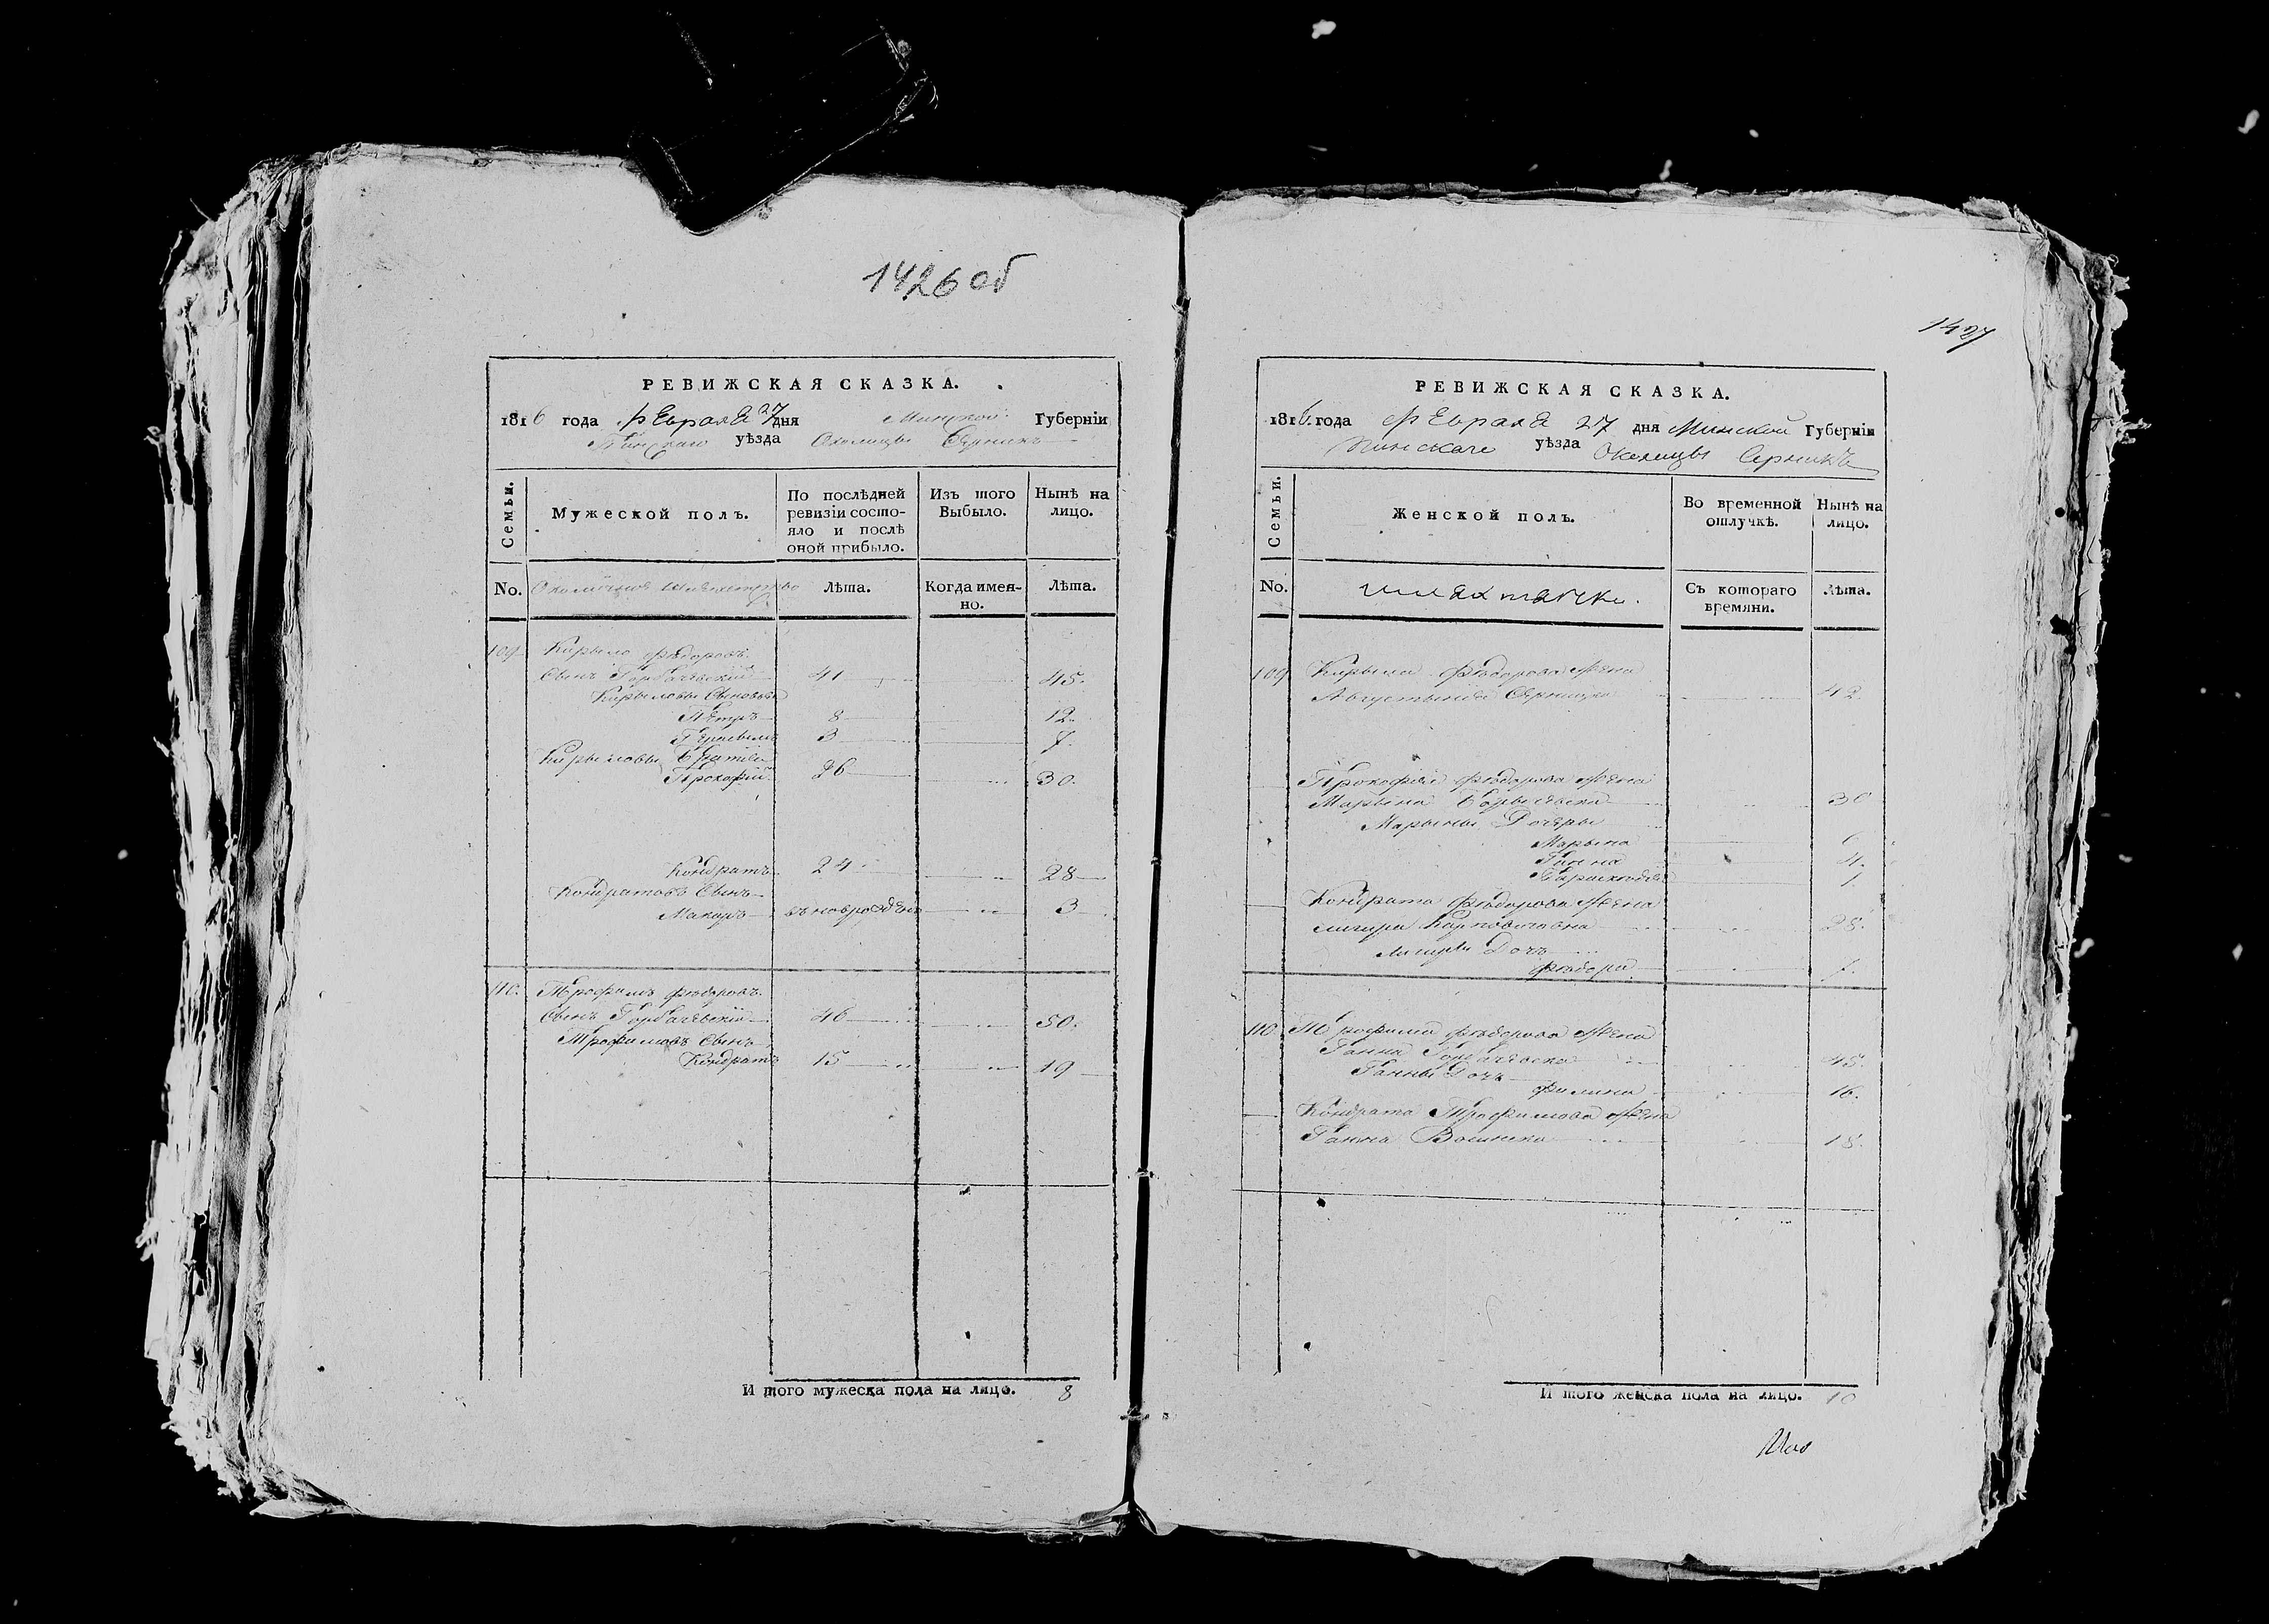 1426 об
РЕВИЖСКАЯ СКАЗКА.
1816 года февраля 27 дня Минской Губерніи
Пинскаго уѣзда Околицы Серникъ
Семьи.
Мужеской полъ.
По послѣдней ревизіи состо-
яло и послѣ
оной прибыло.
Изъ того Выбыло.
Нынѣ на лицо.
No.
Околичное
Лѣта.
Когда имен-
но.
Лѣта.
109 Кирыло Фѣдоровъ
Сынъ Горбачевскій 41 45.
Кирыловы Сыновья
Петръ 8 12.
3 7.
Кирыловы Братья
Прокофий 26 30.
Кондратъ 24 28
Кондратовъ Сынъ
Макаръ 3
110. Трофимъ Фѣдоровъ
Сынъ Горбачевскій 46 50.
Трофимовъ Сынъ
Кондратъ 15 19
И того мужеска пола на лицо. 8
1427
РЕВИЖСКАЯ СКАЗКА.
1816. года февраля 27 дня Минской Губерніи
Пинскаго уѣзда Околицы Серникъ
Семьи.
Женской полъ.
Во временной
отлучкѣ.
Нынѣ на
лицо.
No.
шляхтянки.
Съ котораго
времяни.
Лѣта.
109 Кирыла Фѣдорова Жена
42
Прокофія Фѣдорова Жена
Марына 30
Марыны Дочеры
Марына 6
Ганна 4.
1.
Кондрата Фѣдорова Жена
28.
Дочь
Фѣдора 1.
110 Трофима Фѣдорова Жена
Ганна 45.
Ганны Дочь
16.
Кондрата Трофимова Жена
Ганна 18.
И того женска пола на лицо. 10